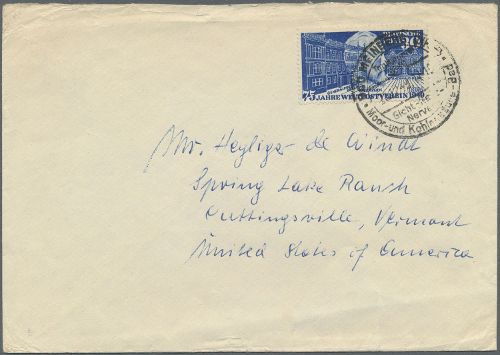 Deutsche
30
75 JAHRE WELTPOSTVEREIN 1949
BAD MEINBERG
Gicht
Nerv
Moor- und Kohlen
Mr. Heyliger de Windt
Spring Lake Ransh
Cuttingsville, Vermont
United States of America